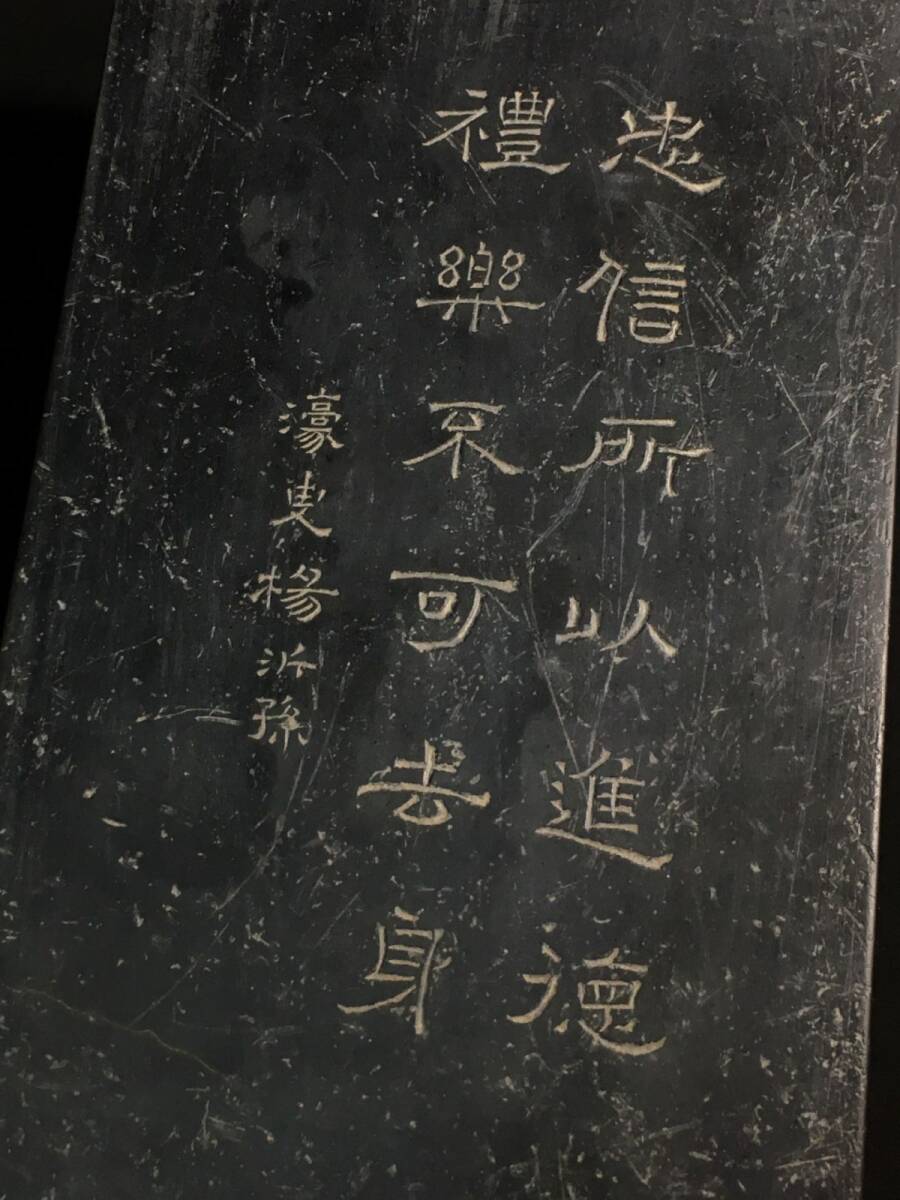 忠信所以進德
禮樂不可去身
濠叟楊沂孫